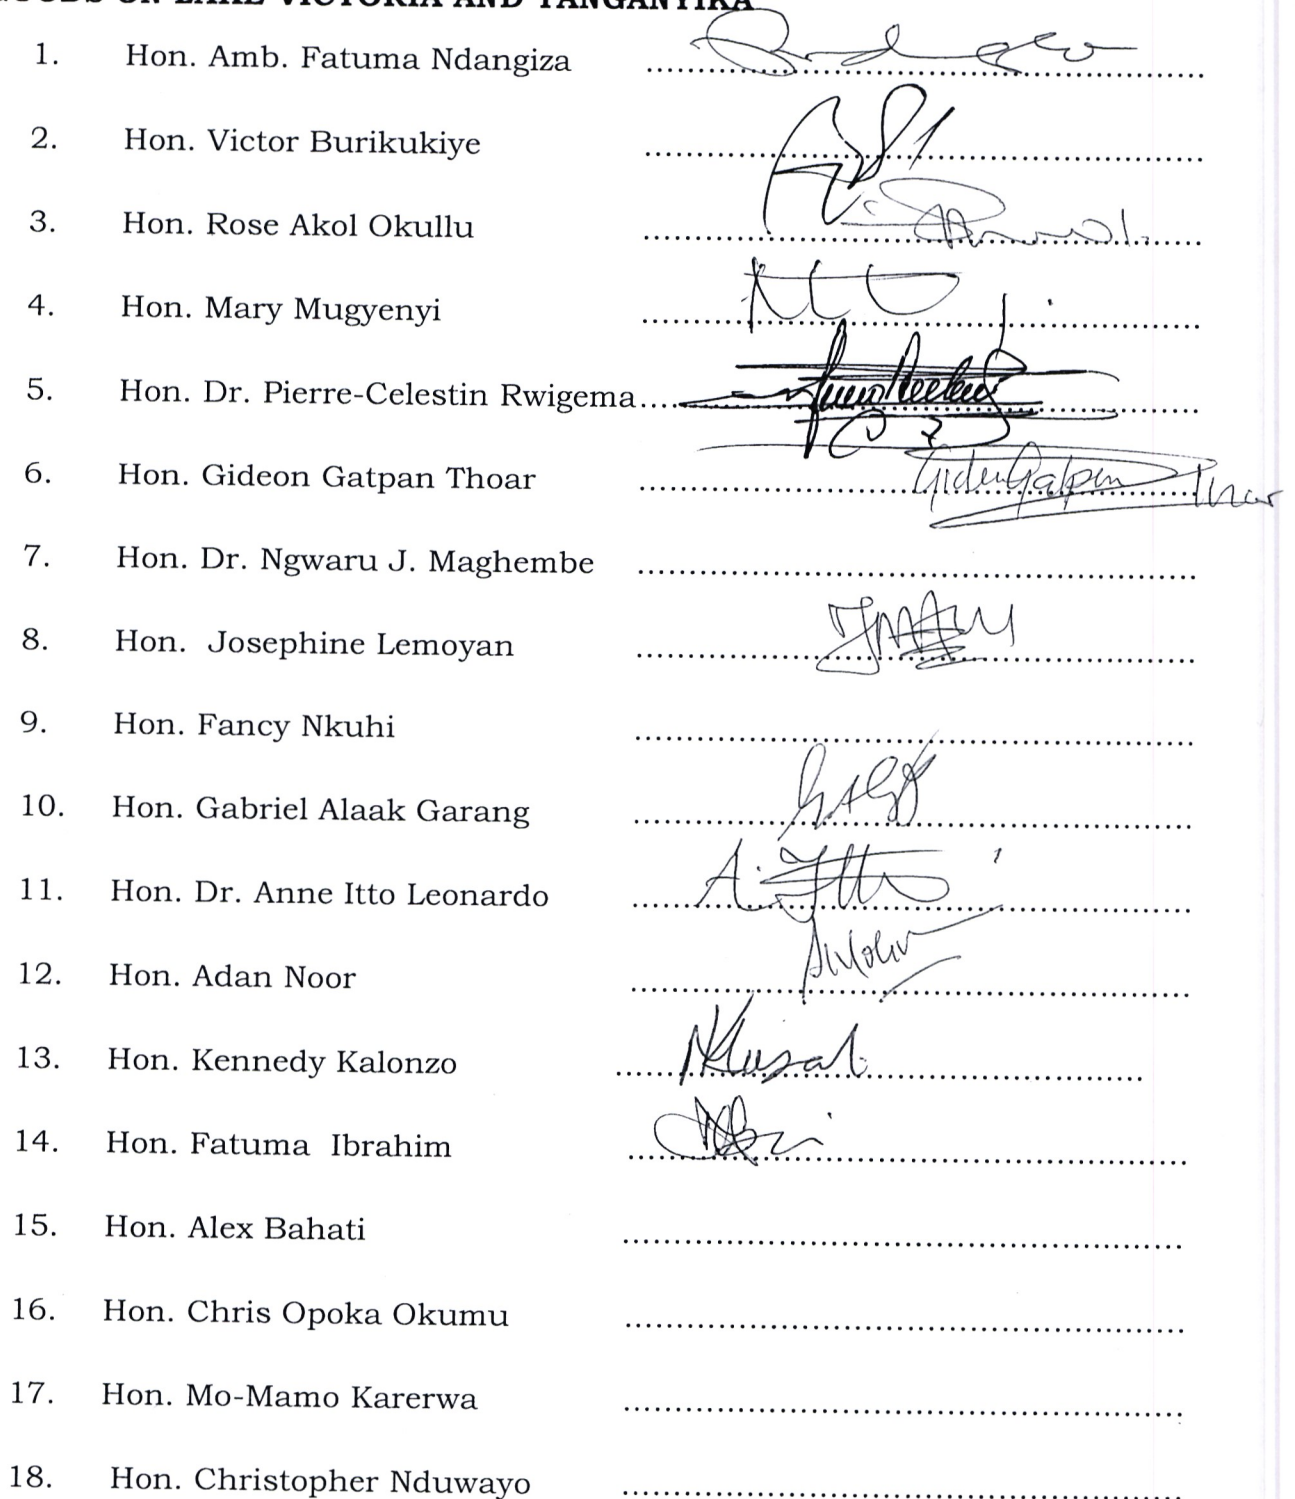 ON LAKE VICTORIA AND TANGANYIKA
1. Hon. Amb. Fatuma Ndangiza
2. Hon. Victor Burikukiye
3. Hon. Rose Akol Okullu
4. Hon. Mary Mugyenyi
5. Hon. Dr. Pierre-Celestin Rwigema
6. Hon. Gideon Gatpan Thoar Gideon Gatpan Thoar
7. Hon. Dr. Ngwaru J. Maghembe
8. Hon. Josephine Lemoyan
9. Hon. Fancy Nkuhi
10. Hon. Gabriel Alaak Garang
11. Hon. Dr. Anne Itto Leonardo A. Itto
12. Hon. Adan Noor
13. Hon. Kennedy Kalonzo
14. Hon. Fatuma Ibrahim
15. Hon. Alex Bahati
16. Hon. Chris Opoka Okumu
17. Hon. Mo-Mamo Karerwa
18. Hon. Christopher Nduwayo